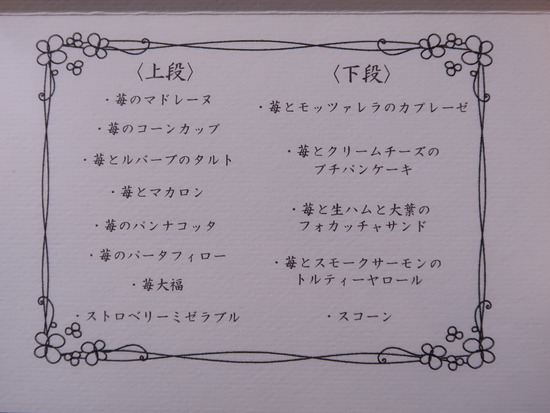 〈上段〉
・苺のマドレーヌ
・苺のコーンカップ
・苺とルバーブのタルト
・苺とマカロン
・苺のパンナコッタ
・苺のパータフィロー
・苺大福
・ストロベリーミゼラブル
〈下段〉
・苺とモッツァレラのカプレーゼ
・苺とクリームチーズの
プチパンケーキ
・苺と生ハムと大葉の
フォカッチャサンド
・苺とスモークサーモンの
トルティーヤロール
・スコーン